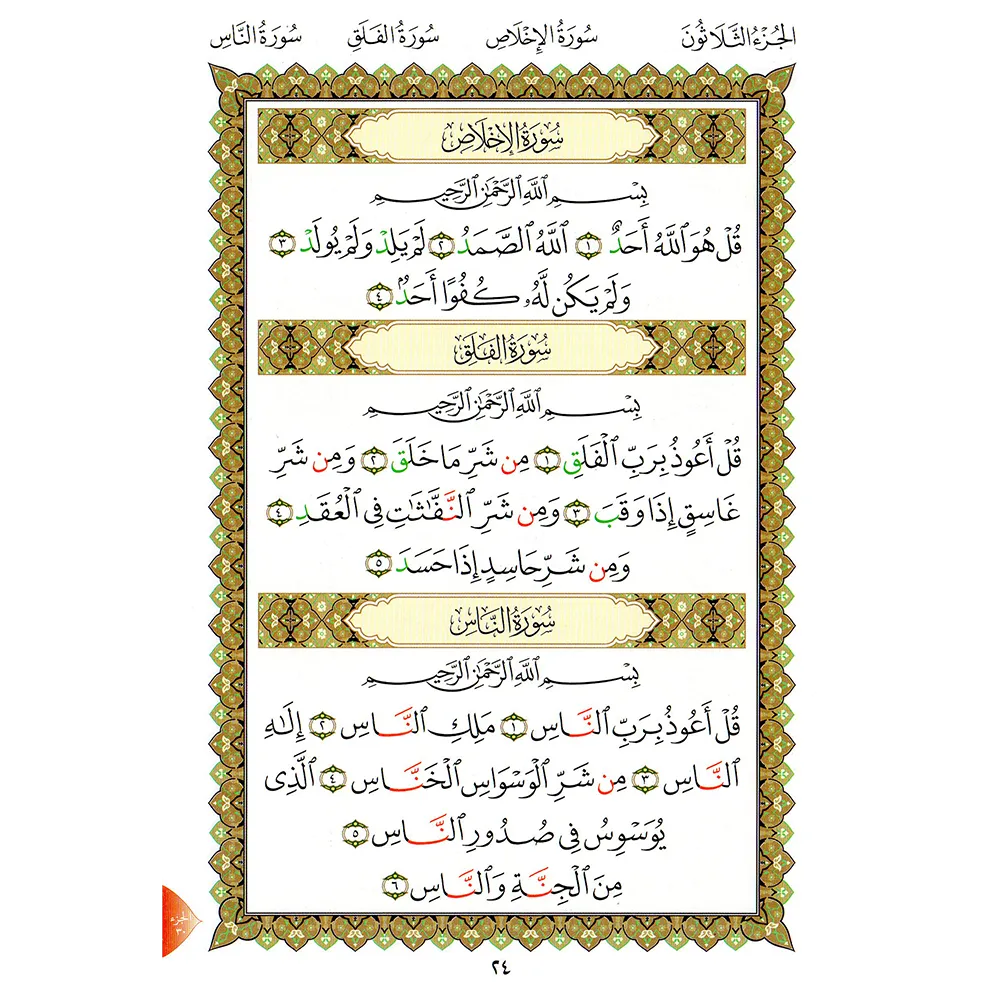 الجُزْءُ الثَّلَاثُونَ سُورَةُ الإِخْلَاصِ سُورَةُ الفَلَقِ سُورَةُ النَّاسِ
سُورَةُ الإِخْلَاصِ
بِسْمِ ٱللَّهِ ٱلرَّحْمَٰنِ ٱلرَّحِيمِ
قُلْ هُوَ ٱللَّهُ أَحَدٌ ١ ٱللَّهُ ٱلصَّمَدُ ٢ لَمْ يَلِدْ وَلَمْ يُولَدْ ٣
وَلَمْ يَكُن لَّهُۥ كُفُوًا أَحَدٌۢ ٤
سُورَةُ الفَلَقِ
بِسْمِ ٱللَّهِ ٱلرَّحْمَٰنِ ٱلرَّحِيمِ
قُلْ أَعُوذُ بِرَبِّ ٱلْفَلَقِ ١ مِن شَرِّ مَا خَلَقَ ٢ وَمِن شَرِّ
غَاسِقٍ إِذَا وَقَبَ ٣ وَمِن شَرِّ ٱلنَّفَّٰثَٰتِ فِى ٱلْعُقَدِ ٤
وَمِن شَرِّ حَاسِدٍ إِذَا حَسَدَ ٥
سُورَةُ النَّاسِ
بِسْمِ ٱللَّهِ ٱلرَّحْمَٰنِ ٱلرَّحِيمِ
قُلْ أَعُوذُ بِرَبِّ ٱلنَّاسِ ١ مَلِكِ ٱلنَّاسِ ٢ إِلَٰهِ
ٱلنَّاسِ ٣ مِن شَرِّ ٱلْوَسْوَاسِ ٱلْخَنَّاسِ ٤ ٱلَّذِى
يُوَسْوِسُ فِى صُدُورِ ٱلنَّاسِ ٥
مِنَ ٱلْجِنَّةِ وَٱلنَّاسِ ٦
الجزء
٣٠
٢٤